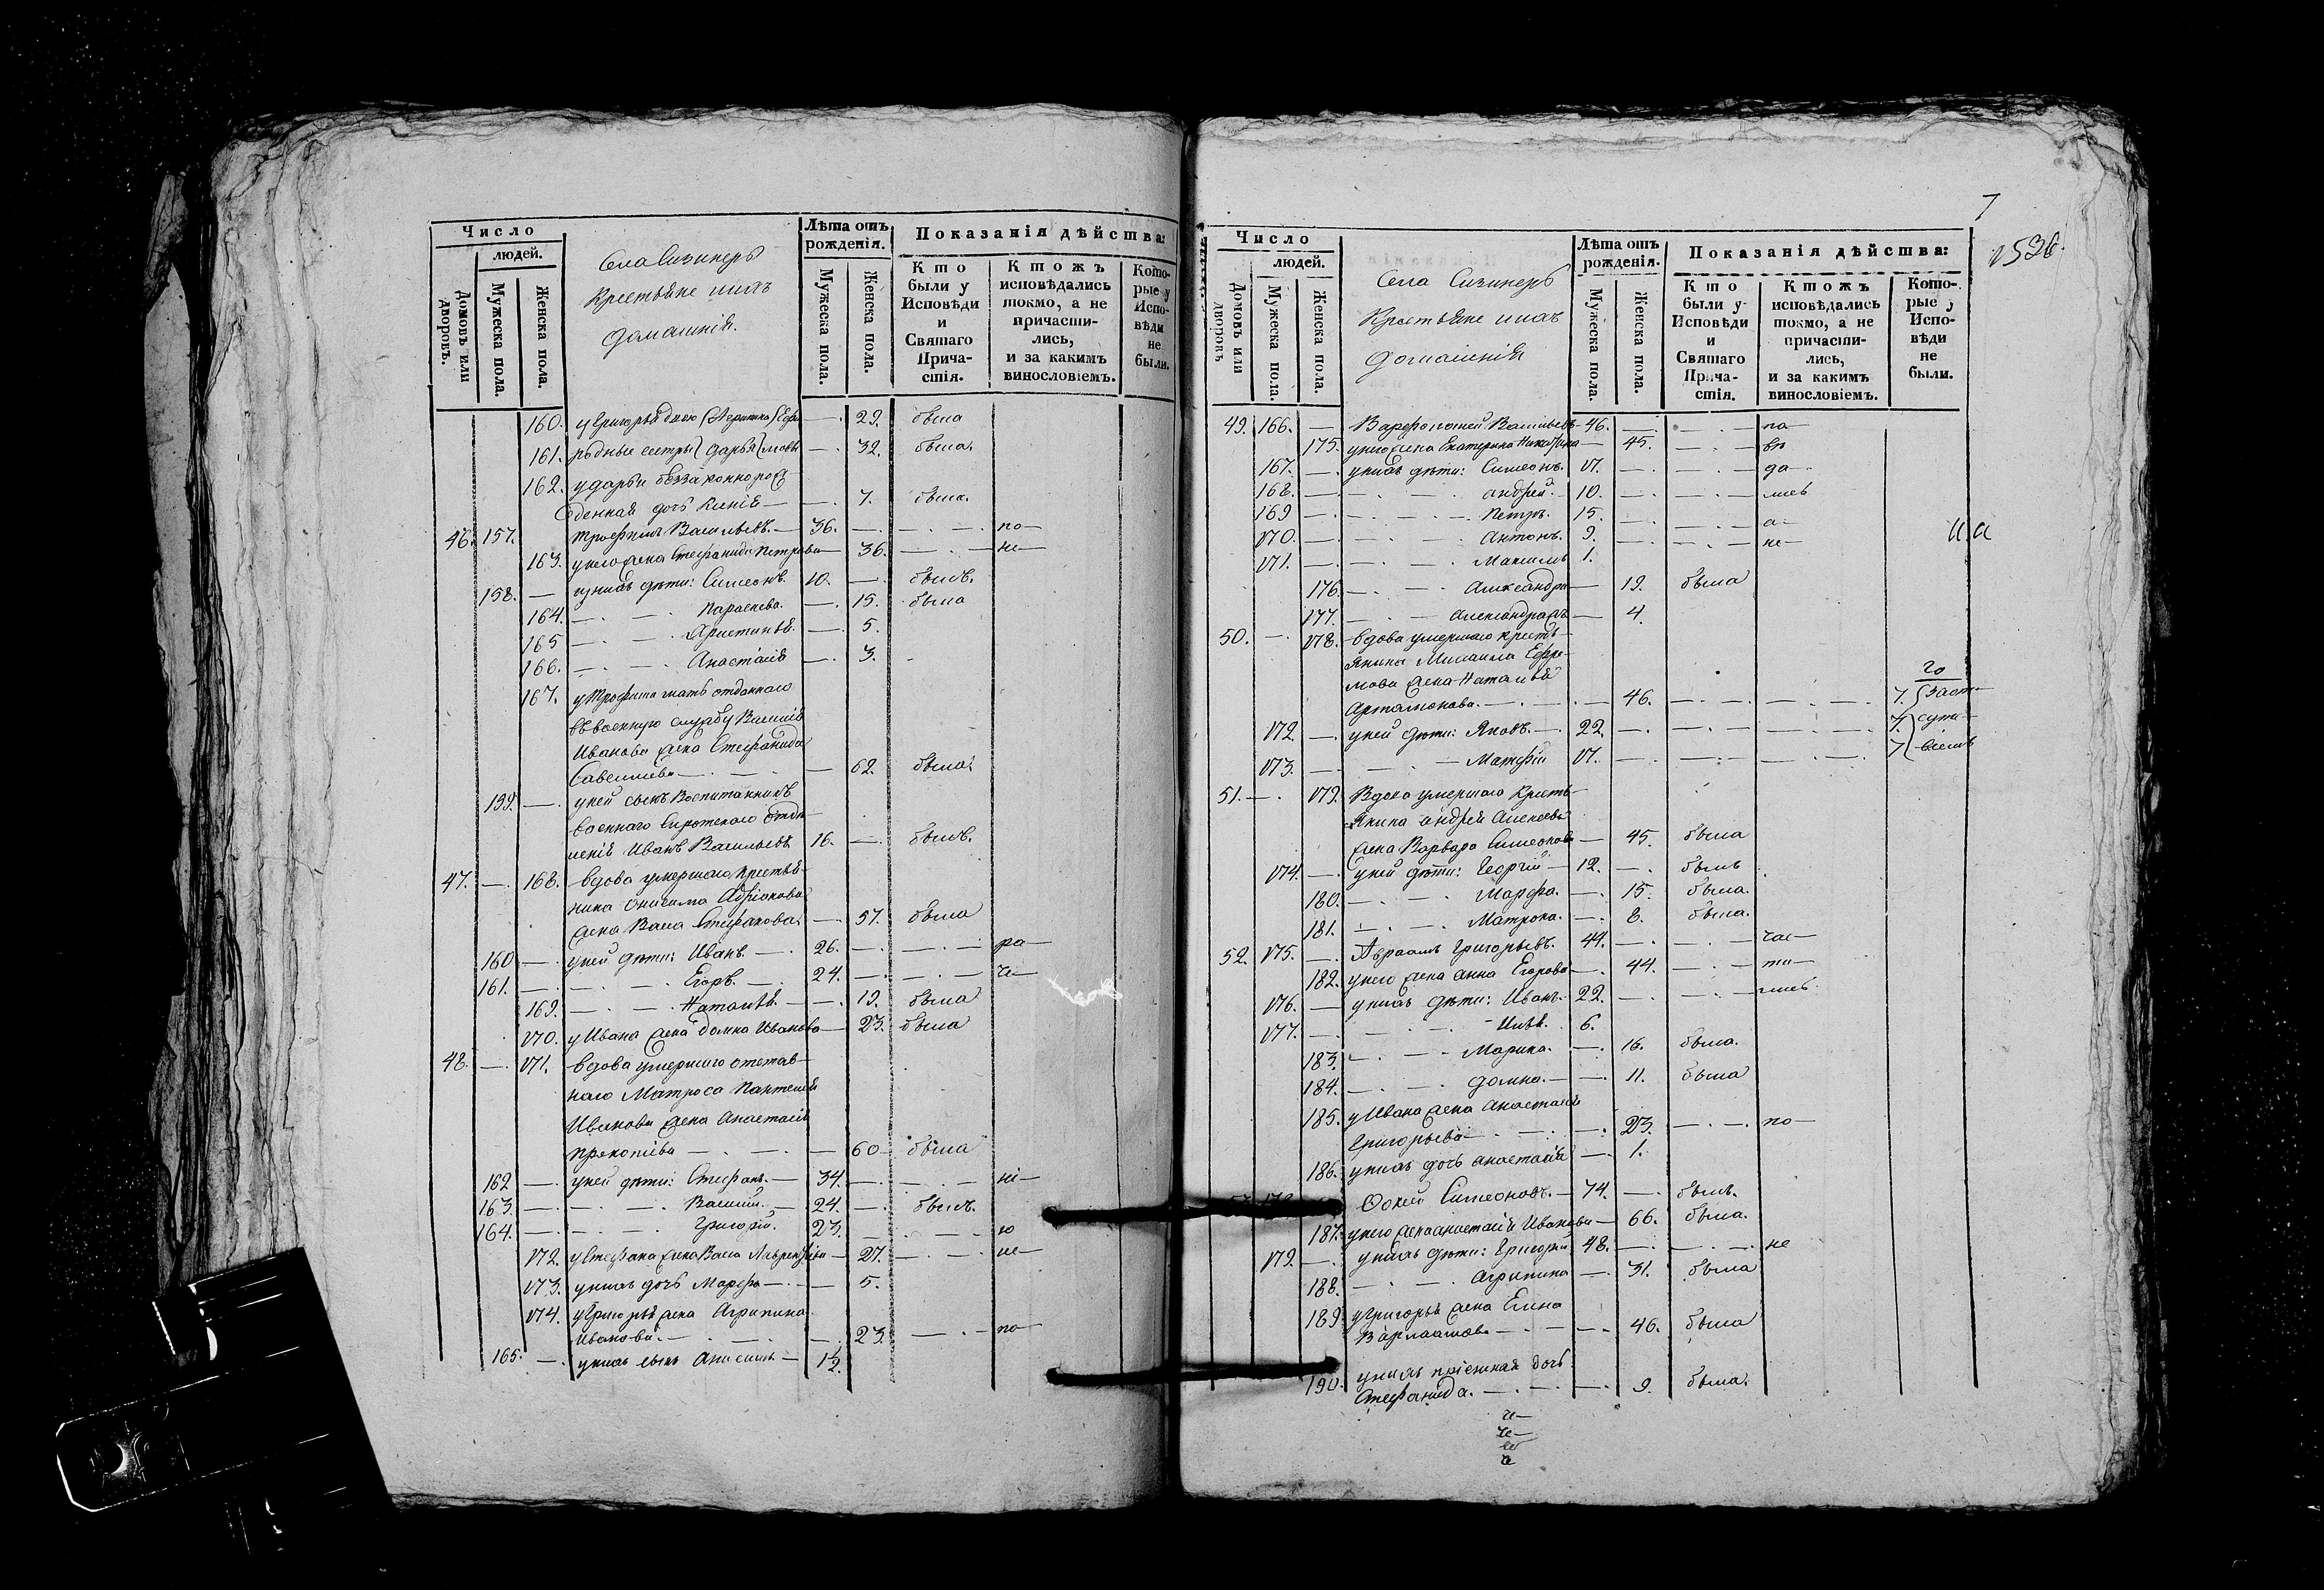 Число
людей.
Домовъ или дворовъ.
Мужеска пола.
Женска пола.
Села Сизинеръ
Крестьяне и ихъ
домашнія.
Лѣта отъ рожденія.
Мужеска пола.
Женска пола.
Показанія дѣйства:
Кто были у Исповѣди и Святаго Причастія.
Ктожъ исповѣдались токмо, а не причастились, и за какимъ винословіемъ.
Которые у Исповѣди не были.
160. у Григорья — 29. была
161. родные сестры Дарья — 32. была.
162. у Дарьи беззаконнорож
денная дочь — 7. была.
46. 157. Трофимъ Васильевъ. — 36. — по—
163. у него жена Стефанида Петрова — 36. — не—
158. — у нихъ дѣти: Симеонъ. 10. — былъ.
164. — Параскева. — 15. была
165 — Христинья. — 5.
166. — Анастасія — 3.
167. у Трофима мать отданнаго
въ военную службу Василія
Иванова жена Стефанида
Савельева — 62. была.
159. — у ней сынъ Воспитанникъ
военнаго Сиротскаго отдѣ
ленія Иванъ Васильевъ 16. — былъ.
47. — 168. вдова умершаго крестья
нина Онисима Адріанова
жена Васса Стефанова. — 57. была
160 — у ней дѣти: Иванъ. — 26. — ра—
161. — Егоръ. — 24. —
169. — Наталья. — 19. была
170. у Ивана жена Домна Иванова — 23. была
48. — 171. вдова умершаго отстав
наго Матроса Пантелея
Иванова жена Анастасія
Прокопіева — 60 была
162 — у ней дѣти: Стефанъ. — 34. — ні—
163. — Василій. — 24. — былъ.
164. — Григорій. 23. — ю
172. у Стефана жена Васса — 27. — не—
173. у нихъ дочь Марфа — 5.
174. у Григорья жена Агрипина
Иванова. — 23. — по—
165. — у нихъ сынъ Онисимъ — 1½
7
536.
Число
людей.
Домовъ или дворовъ
Мужеска пола.
Женска пола.
Села Сизинеръ
Крестьяне и ихъ
домашнія
Лѣта отъ рожденія.
Мужеска пола.
Женска пола.
Показанія дѣйства:
Кто были у Исповѣди и Святаго Причастія.
Ктожъ исповѣдались токмо, а не причастились, и за какимъ винословіемъ.
Которые у Исповѣди не были.
49. 166. — Варфоломей Васильевъ — 46. — по—
175. у него жена Екатерина — 45. —
167. — у нихъ дѣти: Симеонъ. 17. — да—
168. — Андрей. — 10. —
169 — Петръ. 15. —
170. — Антонъ. 9. — не—
171. — Максимъ 1.
176. — Александра — 19. была
177. — Александра — 4.
50. — 178. вдова умершаго крестья
янина Михаила Ефре
мова жена Наталья
Артамонова. — 46. —
172. — у ней дѣти: Яковъ. — 22. —
173. — Матфій 17. —
51. — 179. Вдова умершаго Кресть
янина Андрея Алексеева
жена Варвара Симеонова — 45. была
174. — у ней дѣти: Георгій — 12. — былъ
180. — Марфа. — 15. была.
181. — Матрона. — 8. была.
52. 175. — Авраамъ Григорьевъ. 44. — час—
182. у него жена Анна Егорова — 44. — ти—
176. — у нихъ дѣти: Иванъ. 22. —
177. — Илья. 6.
183. — Марина. — 16. была.
184. — Домна. — 11. была
185. у Ивана жена Анастасія
Григорьева — 23. — по—
186. у нихъ дочь Анастасія — 1.
Фокій Симеоновъ. — 74. — былъ.
187. у него жена Анастасія Иванова — 66. была.
179. — у нихъ дѣти: Григорій 48. — не
188. — Агрипина — 31. была
189. у Григорья жена Елена
Варлаамова — 46. была
190. у нихъ пріемная дочь
Стефанида. — 9. была.